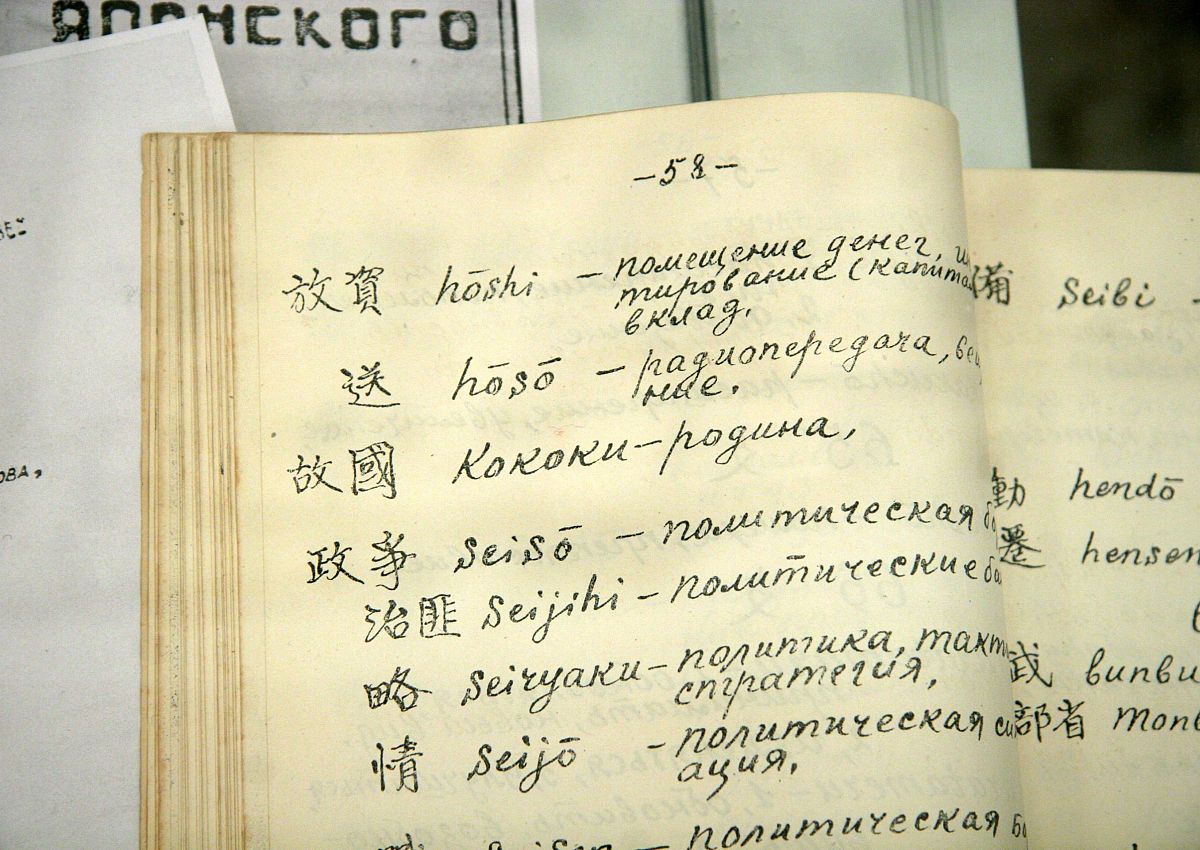 ЯПОНСКОГО
ОВА,
-58-
放資 hōshi - помещение денег,
тирование (капита
вклад.
送 hōsō - радиопередача, ве
ние.
故國 Kokoku - родина,
政爭 Seisō - политическая
治匪 Seijihi - политические
略 Seiryaku - политика, такт
стратегия,
情 Seijō - политическая си
ация,
политическая
備 Seibi -
動 hendō
遷 hensen
武 bunbu
部省 Monb